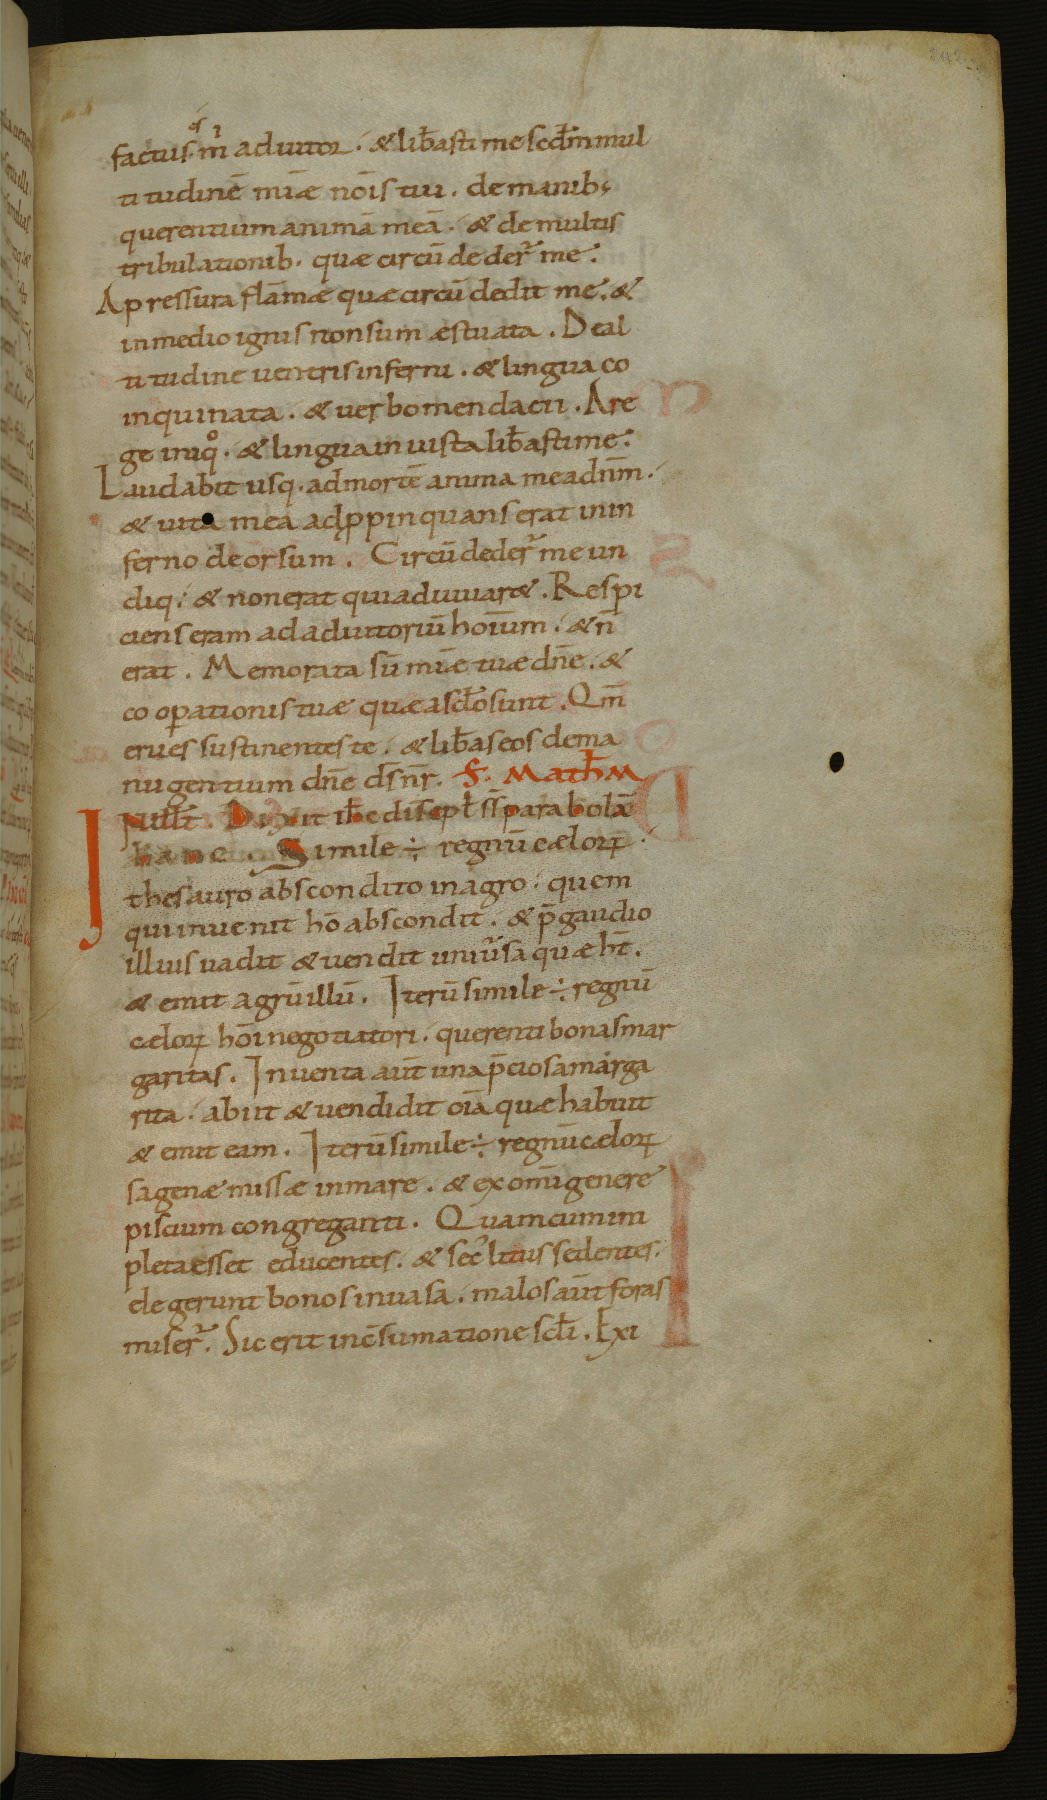 factus es m̄ı adiutor. & lib̄asti me scd̄m mul
titudinē mīae nōis tui. de manib;
querentium animā meā. & de multis
tribulationib. quae circūdeder̄ me.
A pressura flāmae quae circūdedit me. &
in medio ignis non sum aestuata. De al
titudine ventris inferni. & lingua co
inquinata. & verbo mendacii. A re
ge iniqͦ. & lingua iniusta lib̄asti me.
Laudabit usq. ad mortē anima mea dn̄m.
& vita mea adp̱pinquans erat in in
ferno deorsum. Circūdeder̄ me un
diq; & non erat qui adiuvar&. Respi
ciens eram ad adiutoriū hoīum. & n̄
erat. Memorata sū mīae tuae dn̄e. &
cooꝑationis tuae quae a scd̄o sunt. Qm̄
erues sustinentes te. & lib̄as eos de ma
nu gentium dn̄e ds̄ nr̄. S. Math̄m
IN illt̄. Dixit ih̄c discipl̄ ss̄ parabolā
hanc. Simile ÷ regnū caeloꝝ
thesauro abscondito in agro. quem
qui invenit hō abscondit. & p̄ gaudio
illius vadit & vendit univ̄sa quae ht̄.
& emit agrū illū. Iterū simile ÷ regnū
caeloꝝ hōi negotiatori. querenti bonas mar
garitas. Inventa aut̄ una p̄ciosa marga
rita. abiit & vendidit oīa quae habuit
& emit eam. Iterū simile ÷ regnū caeloꝝ
sagenae missae in mare. & ex omī genere
piscium congreganti. Quam cum im
pleta esset educentes. & sec̄ litus sedentes.
elegerunt bonos in vasa. malos aūt foras
miser̄. Sic erit in c̄sumatione scl̄i. Exi